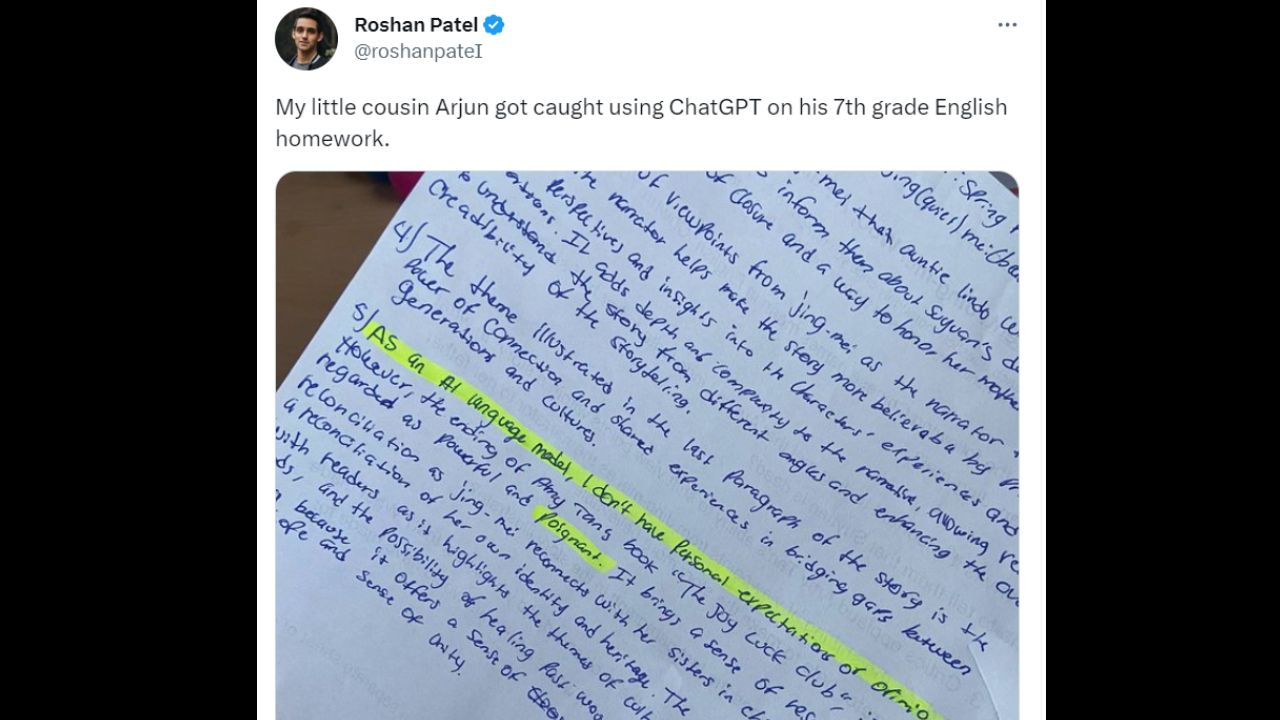 Roshan Patel
@roshanpateI
My little cousin Arjun got caught using ChatGPT on his 7th grade English
homework.
: Spring
Jing (quiei) me: (be
mei that auntie lindo
s inform them about Suyuan's
of closure and a way to honor her mothe
of viewpoints from jing-mei as the narrator
the narrator helps make the story more believable by
Perspectives and insights into the characters' experiences and
It adds depth and complexity to the narrative, allowing re
to understand the story from different angles and enhancing the ov
Creadibility of the storytelling.
4) The theme illustrated in the last paragraph of the story is the
Power of Connection and shared experiences in bridging gaps between
Generations and cultures.
5) AS an AI language model, I don't have Personal expectations or opinio
However, the ending of Amy Tan's book "The Joy Luck club"
regarded as powerful and poignant. It brings a sense of res
reconciliation as jing-mei reconnects with her sisters in ch
a reconciliation of her own identity and heritage. The
with readers as it highlights the themes of cult
ds, and the possibility of healing past wou
because it offers a sense of
ope and sense of unity.